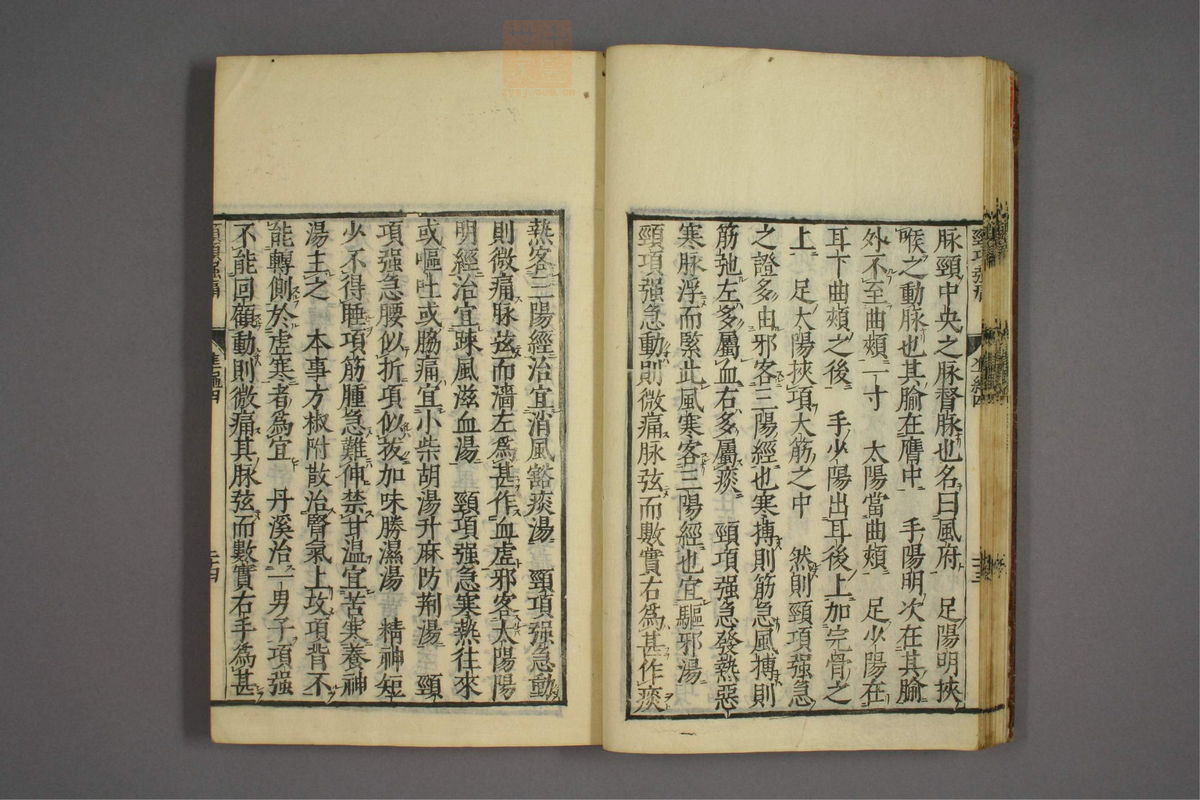 脉頸中央之脉督脉也名曰風府　足陽明挾
喉之動脉也其腧在膺中　手陽明次在其腧
外不至曲頰一寸　太陽當曲頰　足少陽在
耳下曲頰之後　手少陽出耳後上加完骨之
上　足太陽挾項大筋之中　然則頸項强急
之證多由邪客三陽經也寒搏則筋急風搏則
筋弛左多屬血右多屬痰　頸項强急發熱惡
寒脉浮而緊此風寒客三陽經也宜驅邪湯
頸項强急動則微痛脉弦而數實右爲甚作痰
熱客三陽經治宜消風豁痰湯　頸項强急動
則微痛脉弦而濇左爲甚作血虚邪客太陽陽
明經治宜疎風滋血湯　頸項强急寒熱往來
或嘔吐或脇痛宜小柴胡湯升麻防荆湯　頸
項强急腰似折項似拔加味勝濕湯　精神短
少不得睡項筋腫急難伸禁甘温宜苦寒養神
湯主之　本事方椒附散治腎氣上攻項背不
能轉側於虚寒者爲宜　丹溪治一男子項强
不能回顧動則微痛其脉弦而數實右手爲甚